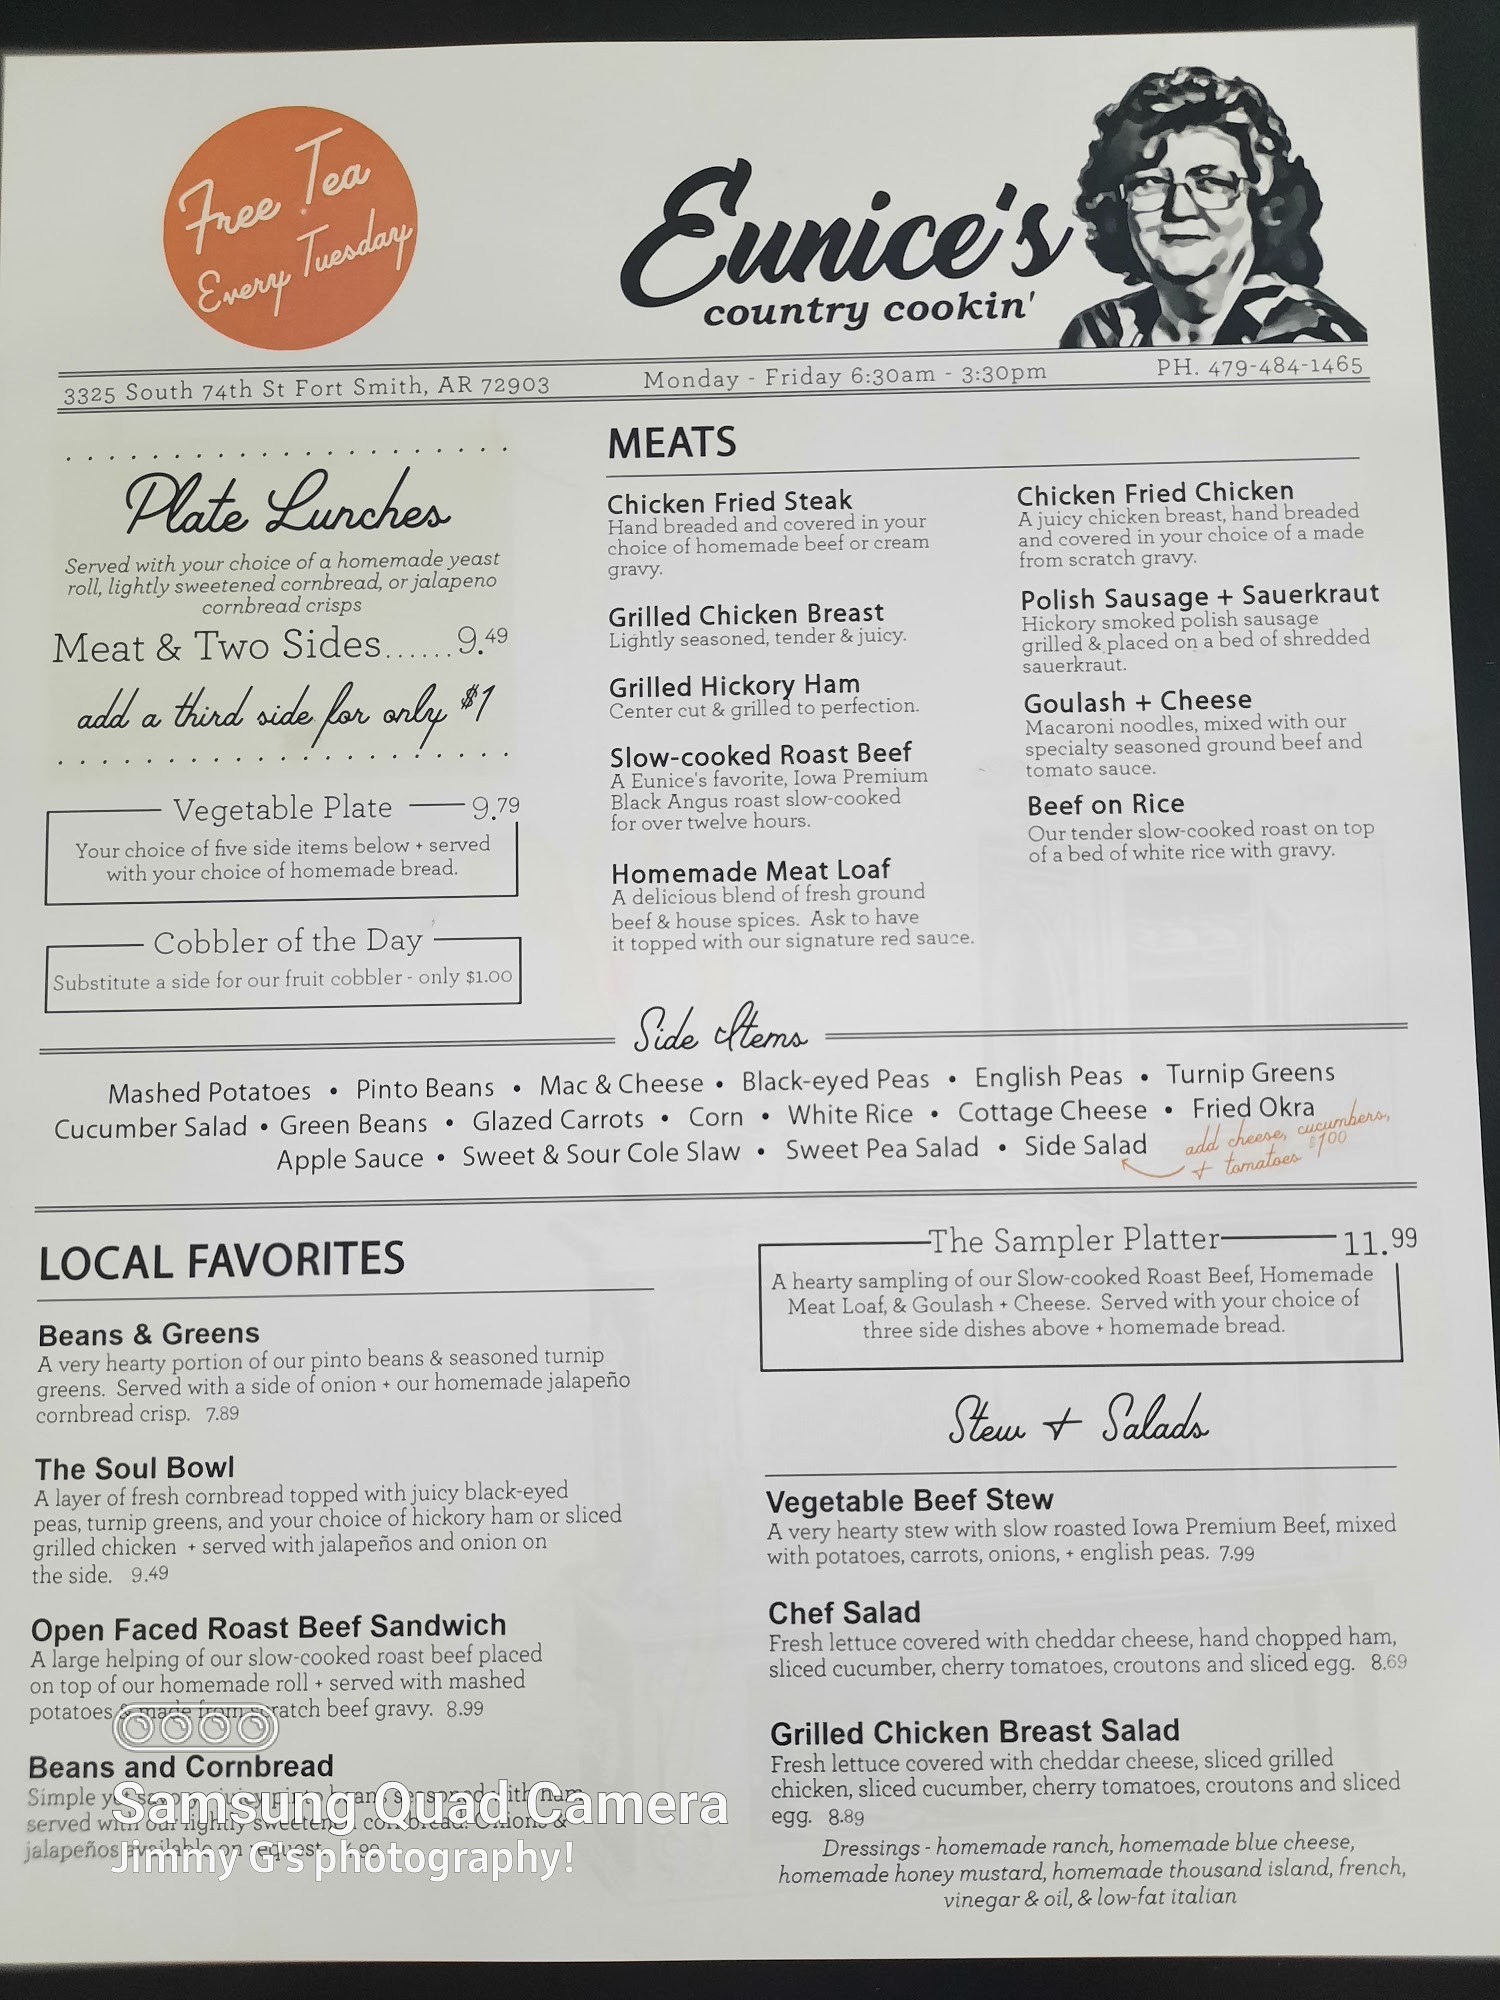 Free Tea
Every Tuesday
Eunice's
country cookin'
3325 South 74th St Fort Smith, AR 72903
Monday - Friday 6:30am - 3:30pm
PH. 479-484-1465
Plate Lunches
Served with your choice of a homemade yeast
roll, lightly sweetened cornbread, or jalapeno
cornbread crisps
Meat & Two Sides......9.49
add a third side for only $1
Vegetable Plate 9.79
Your choice of five side items below + served
with your choice of homemade bread.
Cobbler of the Day
Substitute a side for our fruit cobbler - only $1.00
MEATS
Chicken Fried Steak
Hand breaded and covered in your
choice of homemade beef or cream
gravy.
Grilled Chicken Breast
Lightly seasoned, tender & juicy.
Grilled Hickory Ham
Center cut & grilled to perfection.
Slow-cooked Roast Beef
A Eunice's favorite, Iowa Premium
Black Angus roast slow-cooked
for over twelve hours.
Homemade Meat Loaf
A delicious blend of fresh ground
beef & house spices. Ask to have
it topped with our signature red sauce.
Chicken Fried Chicken
A juicy chicken breast, hand breaded
and covered in your choice of a made
from scratch gravy.
Polish Sausage + Sauerkraut
Hickory smoked polish sausage
grilled & placed on a bed of shredded
sauerkraut.
Goulash + Cheese
Macaroni noodles, mixed with our
specialty seasoned ground beef and
tomato sauce.
Beef on Rice
Our tender slow-cooked roast on top
of a bed of white rice with gravy.
Side Items
Mashed Potatoes • Pinto Beans • Mac & Cheese • Black-eyed Peas • English Peas • Turnip Greens
Cucumber Salad • Green Beans • Glazed Carrots • Corn • White Rice • Cottage Cheese • Fried Okra
Apple Sauce • Sweet & Sour Cole Slaw • Sweet Pea Salad • Side Salad
add cheese, cucumbers,
+ tomatoes $1.00
LOCAL FAVORITES
Beans & Greens
A very hearty portion of our pinto beans & seasoned turnip
greens. Served with a side of onion + our homemade jalapeño
cornbread crisp. 7.89
The Soul Bowl
A layer of fresh cornbread topped with juicy black-eyed
peas, turnip greens, and your choice of hickory ham or sliced
grilled chicken + served with jalapeños and onion on
the side. 9.49
Open Faced Roast Beef Sandwich
A large helping of our slow-cooked roast beef placed
on top of our homemade roll + served with mashed
potatoes & made from scratch beef gravy. 8.99
Beans and Cornbread
Simple yet pinto beans seasoned with ham
served with our lightly sweetened cornbread. Onions &
jalapeños available on request.
The Sampler Platter 11.99
A hearty sampling of our Slow-cooked Roast Beef, Homemade
Meat Loaf, & Goulash + Cheese. Served with your choice of
three side dishes above + homemade bread.
Stew + Salads
Vegetable Beef Stew
A very hearty stew with slow roasted Iowa Premium Beef, mixed
with potatoes, carrots, onions, + english peas. 7.99
Chef Salad
Fresh lettuce covered with cheddar cheese, hand chopped ham,
sliced cucumber, cherry tomatoes, croutons and sliced egg. 8.69
Grilled Chicken Breast Salad
Fresh lettuce covered with cheddar cheese, sliced grilled
chicken, sliced cucumber, cherry tomatoes, croutons and sliced
egg. 8.89
Dressings - homemade ranch, homemade blue cheese,
homemade honey mustard, homemade thousand island, french,
vinegar & oil, & low-fat italian
Samsung Quad Camera
Jimmy G's photography!